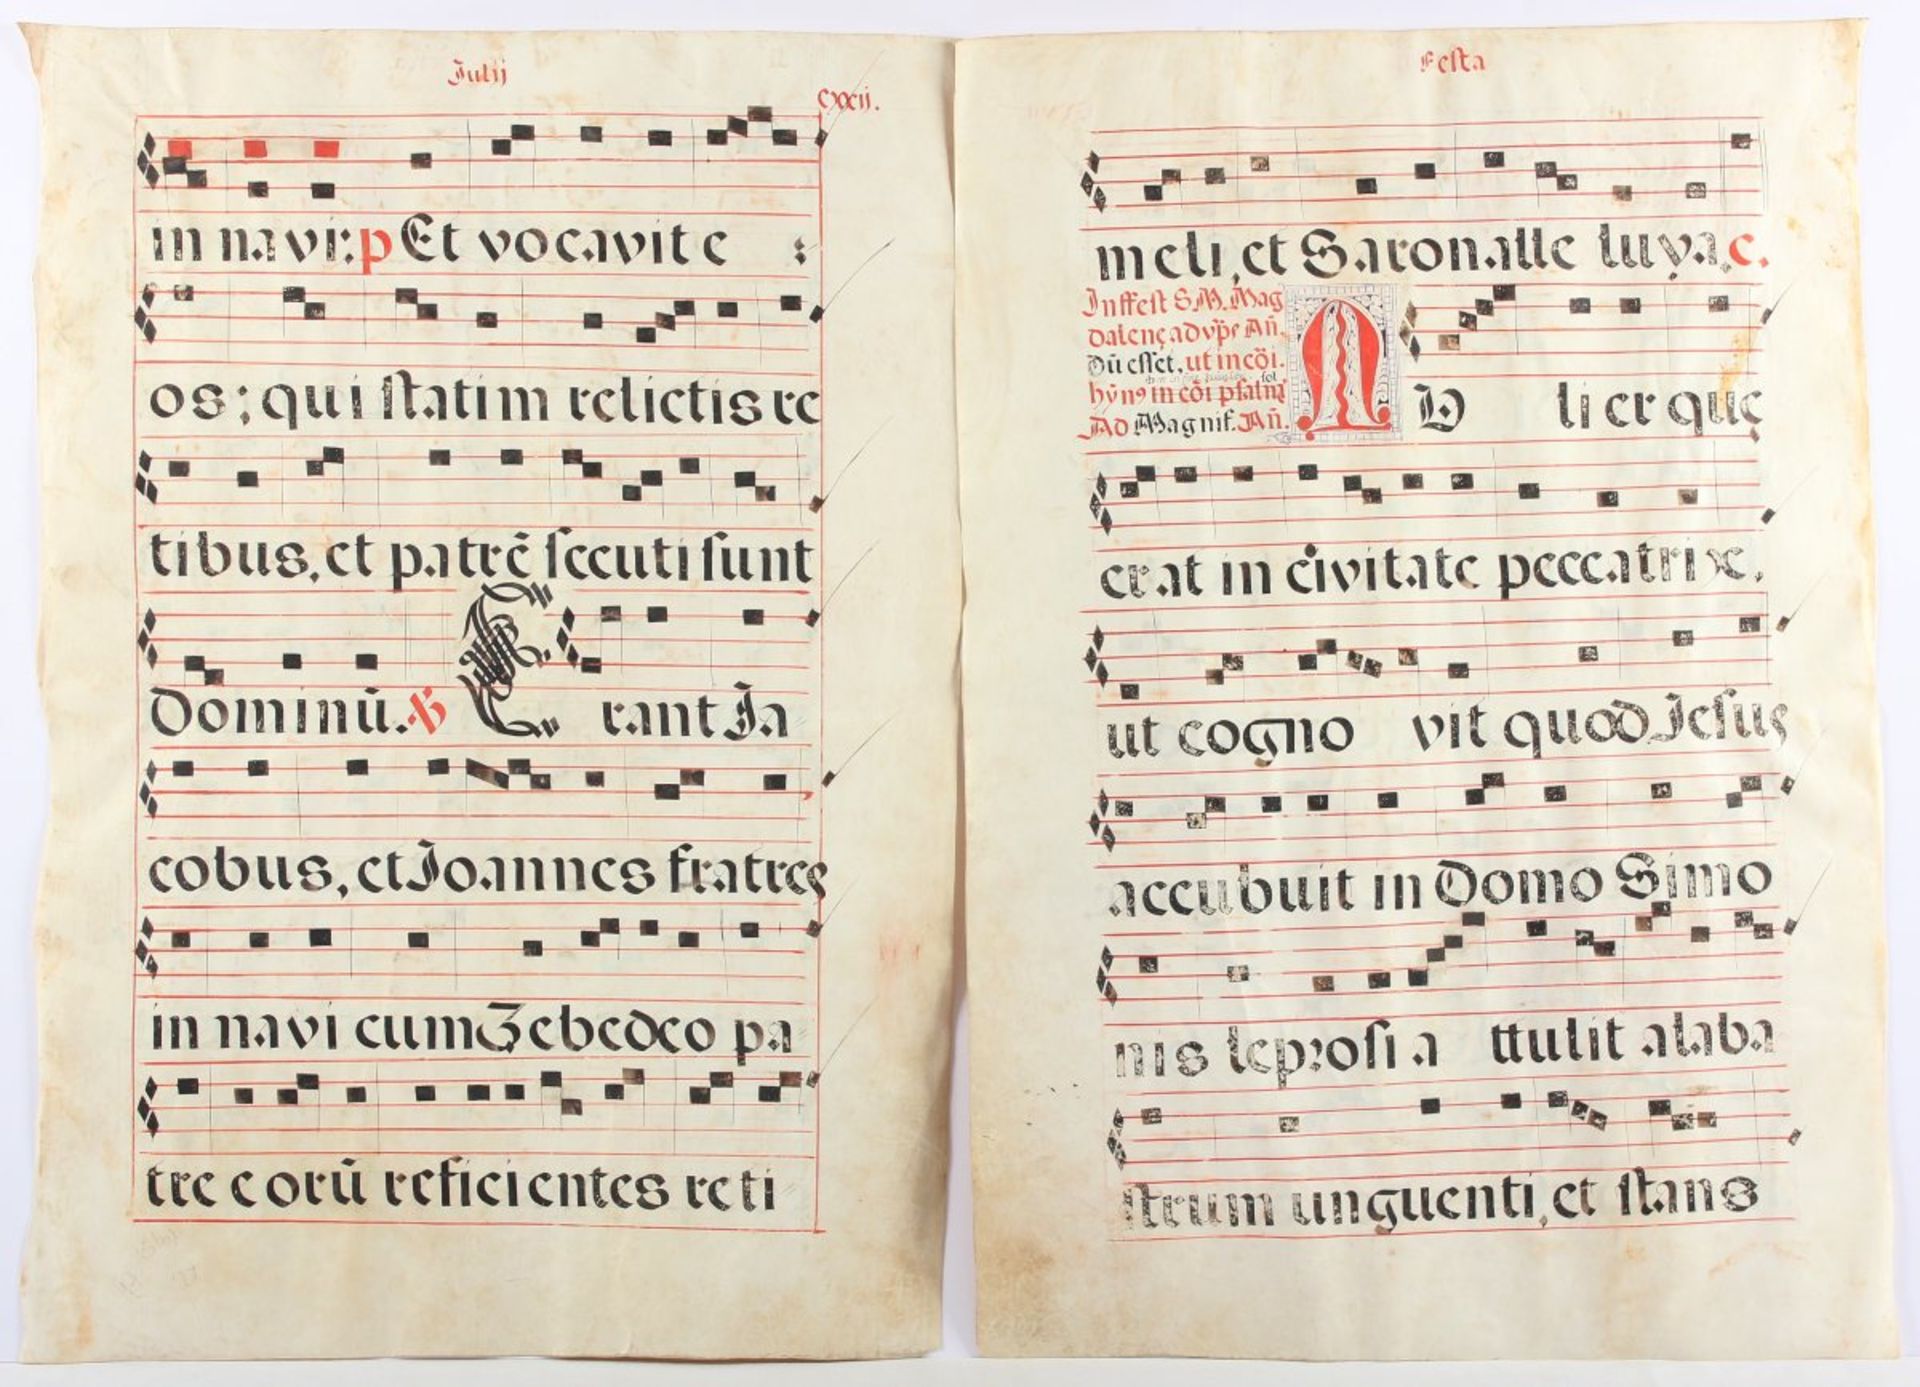 Julij
cxxij.
in navi: p Et vocavit e
os; qui statim relictis re
tibus, et patrē secuti sunt
dominū. ℟ E rant Ja
cobus, et Joannes fratres
in navi cum Zebedeo pa
tre eorū reficientes reti
Festa
meli, et Saron alle luya. c.
In ffest S. M. Mag
dalenę ad vp̄e An̄.
Dū esset, ut in cōi.
hȳn9 in cōi psalm9
Ad Magnif. An̄.
M U lier que
erat in civitate peccatrixe,
ut cogno vit quod Jesus
accubuit in domo Simo
nis leprosi a ttulit alaba
strum unguenti, et stans